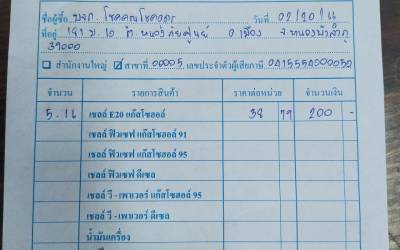 ชื่อผู้ซื้อ บจก. โชคคูณโชคอุดร วันที่ 02/20/น
ที่อยู่ 141 ม.10 ต. หนองภัยศูนย์ อ เมือง จ. หนองบัวลำภู
39000
สำนักงานใหญ่ ☑ สาขาที่ 00005 เลขประจำตัวผู้เสียภาษี 0415554000050
จำนวน รายการสินค้า ราคาต่อหน่วย จำนวนเงิน
5.16 เชลล์ E20 แก๊สโซฮอล์ 38 79 200 -
เชลล์ ฟิวเซฟ แก๊สโซฮอล์ 91
เชลล์ ฟิวเซฟ แก๊สโซฮอล์ 95
เชลล์ ฟิวเซฟ ดีเซล
เชลล์ วี - เพาเวอร์ แก๊สโซฮอล์ 95
เชลล์ วี - เพาเวอร์ ดีเซล
น้ำมันเครื่อง